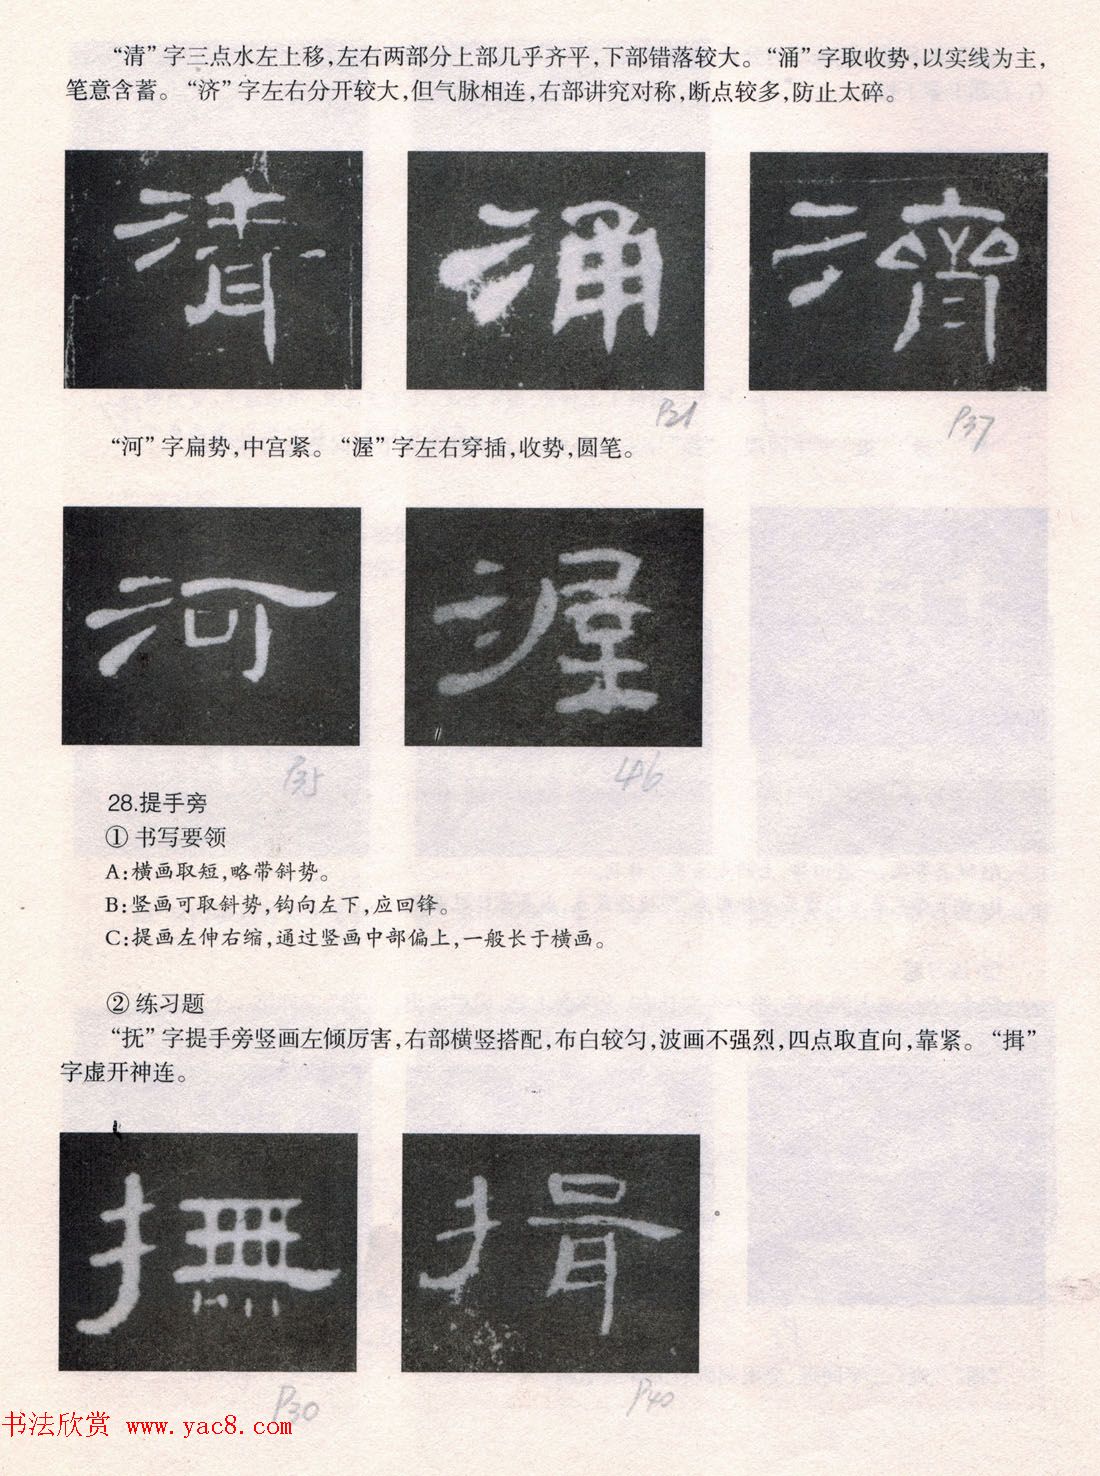 “清”字三点水左上移，左右两部分上部几乎齐平，下部错落较大。“涌”字取收势，以实线为主，
笔意含蓄。“济”字左右分开较大，但气脉相连，右部讲究对称，断点较多，防止太碎。
清 涌 濟
P21 P37
“河”字扁势，中宫紧。“渥”字左右穿插，收势，圆笔。
河 渥
P35 46
28.提手旁
① 书写要领
A:横画取短，略带斜势。
B:竖画可取斜势，钩向左下，应回锋。
C:提画左伸右缩，通过竖画中部偏上，一般长于横画。
② 练习题
“抚”字提手旁竖画左倾厉害，右部横竖搭配，布白较匀，波画不强烈，四点取直向，靠紧。“揖”
字虚开神连。
撫 揖
P30 P40
书法欣赏 www.yac8.com